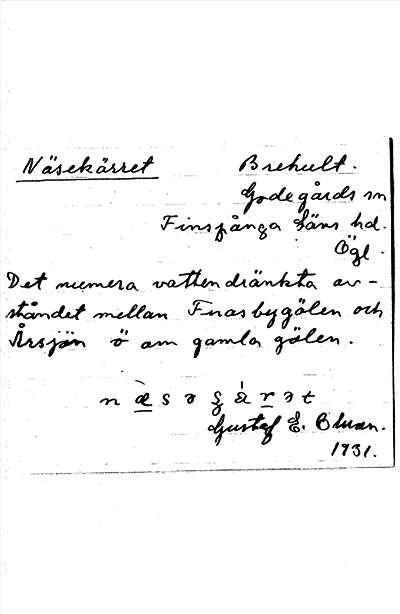 Näsekärret Brehult.
Godegårds sn
Finspånga läns hd.
Ögl.
Det numera vattendränkta av-
ståndet mellan Fnasbygölen och
Årsjön ö om gamla gölen.
Gustaf E. Bluan.
1931.